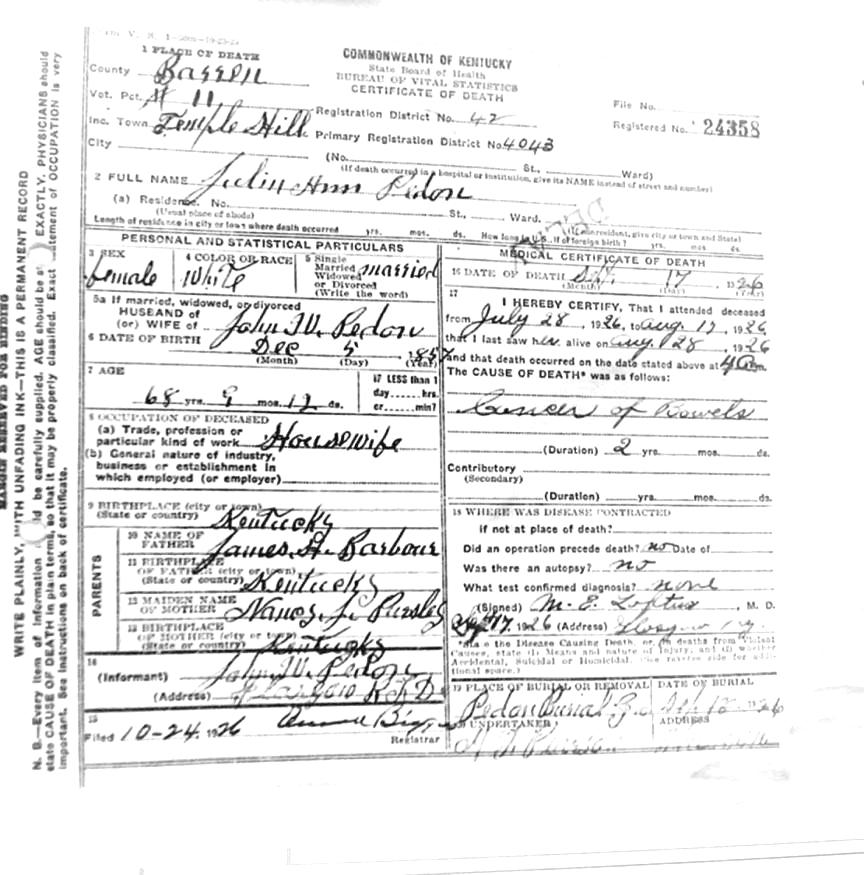 1 PLACE OF DEATH
County Barren
Vot. Pct. # 11
Inc. Town Temple Hill
City
COMMONWEALTH OF KENTUCKY
State Board of Health
BUREAU OF VITAL STATISTICS
CERTIFICATE OF DEATH
Registration District No. 42
Primary Registration District No. 4043
File No.
Registered No. 24358
(No. St., Ward)
(If death occurred in a hospital or institution, give its NAME instead of street and number)
2 FULL NAME Julia Ann Pedon
(a) Residence. No. St., Ward.
(Usual place of abode) (If nonresident, give city or town and State)
Length of residence in city or town where death occurred yrs. mos. ds. How long in U.S., if of foreign birth? yrs. mos. ds.
PERSONAL AND STATISTICAL PARTICULARS
3 SEX
female
4 COLOR OR RACE
White
5 Single
Married
Widowed
or Divorced
(Write the word)
married
5a If married, widowed, or divorced
HUSBAND of
(or) WIFE of John W. Pedon
6 DATE OF BIRTH Dec 5 1857
(Month) (Day) (Year)
7 AGE
68 yrs. 9 mos. 12 ds.
If LESS than 1
day......hrs.
or......min?
8 OCCUPATION OF DECEASED
(a) Trade, profession or
particular kind of work Housewife
(b) General nature of industry,
business or establishment in
which employed (or employer)
9 BIRTHPLACE (city or town)
(State or country) Kentucky
PARENTS
10 NAME OF
FATHER James H. Barbour
11 BIRTHPLACE
OF FATHER (city or town)
(State or country) Kentucky
12 MAIDEN NAME
OF MOTHER Nancy J. Pursley
13 BIRTHPLACE
OF MOTHER (city or town)
Kentucky
14
(Informant) John W. Pedon
(Address) Glasgow R.F.D
15
Filed 10-24, 1926
Registrar
MEDICAL CERTIFICATE OF DEATH
16 DATE OF DEATH Sept. 17 1926
(Month) (Day) (Year)
17
I HEREBY CERTIFY, That I attended deceased
from July 28, 1926, to Aug. 17, 1926
that I last saw her alive on Aug. 28, 1926
and that death occurred on the date stated above at 4 a m.
The CAUSE OF DEATH* was as follows:
Cancer of Bowels
(Duration) 2 yrs. mos. ds.
Contributory
(Secondary)
(Duration) yrs. mos. ds.
18 WHERE WAS DISEASE CONTRACTED
if not at place of death?
Did an operation precede death? no Date of
Was there an autopsy? no
What test confirmed diagnosis? none
(Signed) M. E. Loftus, M. D.
Sept 17, 1926 (Address) Glasgow Ky.
*State the Disease Causing Death, or, in deaths from Violent
Causes, state (1) Means and nature of Injury, and (2) whether
Accidental, Suicidal or Homicidal. (See reverse side for addi-
tional space.)
19 PLACE OF BURIAL OR REMOVAL
Pedon Burial
DATE OF BURIAL
1926
20 UNDERTAKER
ADDRESS
MARGIN RESERVED FOR BINDING
WRITE PLAINLY, WITH UNFADING INK—THIS IS A PERMANENT RECORD
N. B.—Every item of information should be carefully supplied. AGE should be stated EXACTLY. PHYSICIANS should
state CAUSE OF DEATH in plain terms, so that it may be properly classified. Exact statement of OCCUPATION is very
important. See instructions on back of certificate.